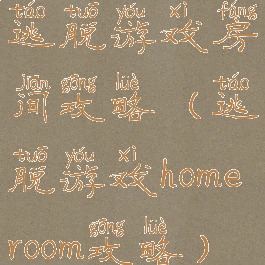 táo tuō yóu xì fáng
逃脱游戏房
jiān gōng lüè táo
间攻略(逃
tuō yóu xì
脱游戏home
gōng lüè
room攻略)